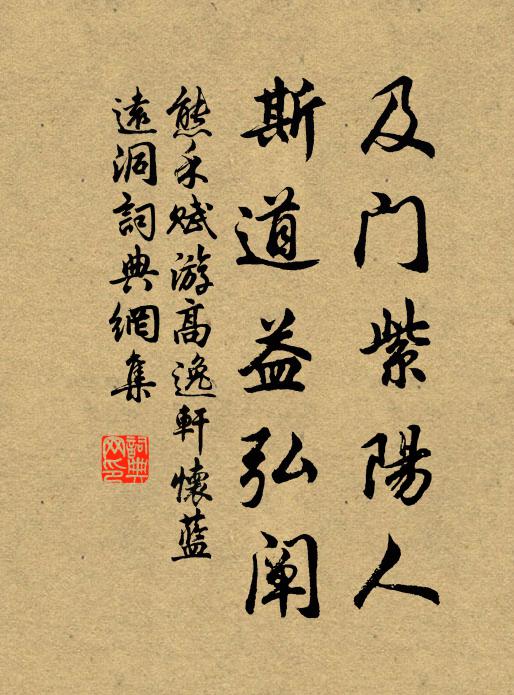 及门紫陽人
斯道益弘阐
熊禾赋游高逸軒懷藍
遠洞詞典網集
詞典
网印